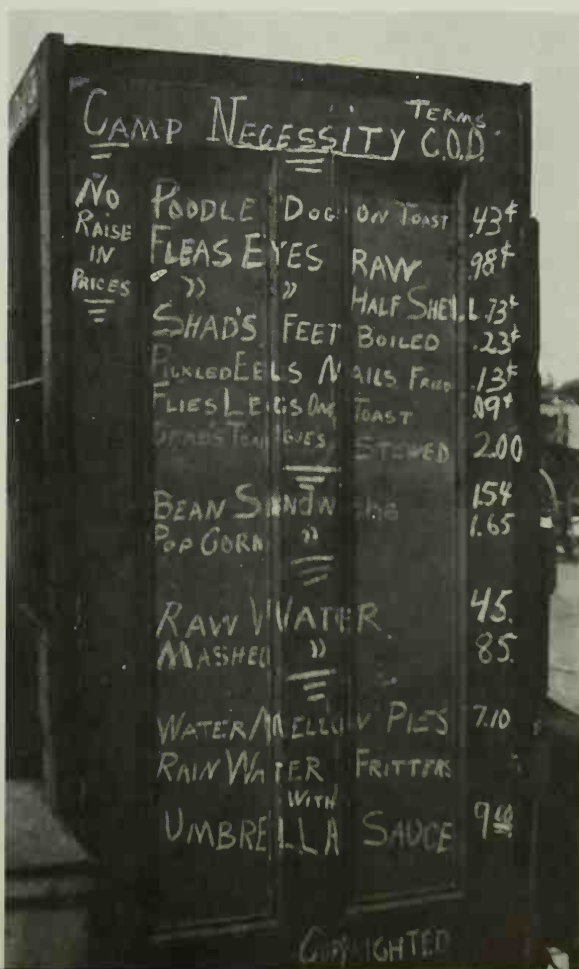 TERMS
CAMP NECESSITY C.O.D.
NO RAISE IN PRICES
POODLE DOG ON TOAST .43¢
FLEAS EYES RAW .98¢
" " HALF SHELL .73¢
SHAD'S FEET BOILED .23¢
PICKLED EELS NAILS FRIED .13¢
FLIES LEGS ON TOAST .09¢
TONGUES STEWED 2.00
BEAN SANDWICHS 1.54
POP CORN " 1.65
RAW WATER 45.
MASHED " 85.
WATER MELLON PIES 7.10
RAIN WATER FRITTERS
WITH
UMBRELLA SAUCE 9.00
COPYRIGHTED